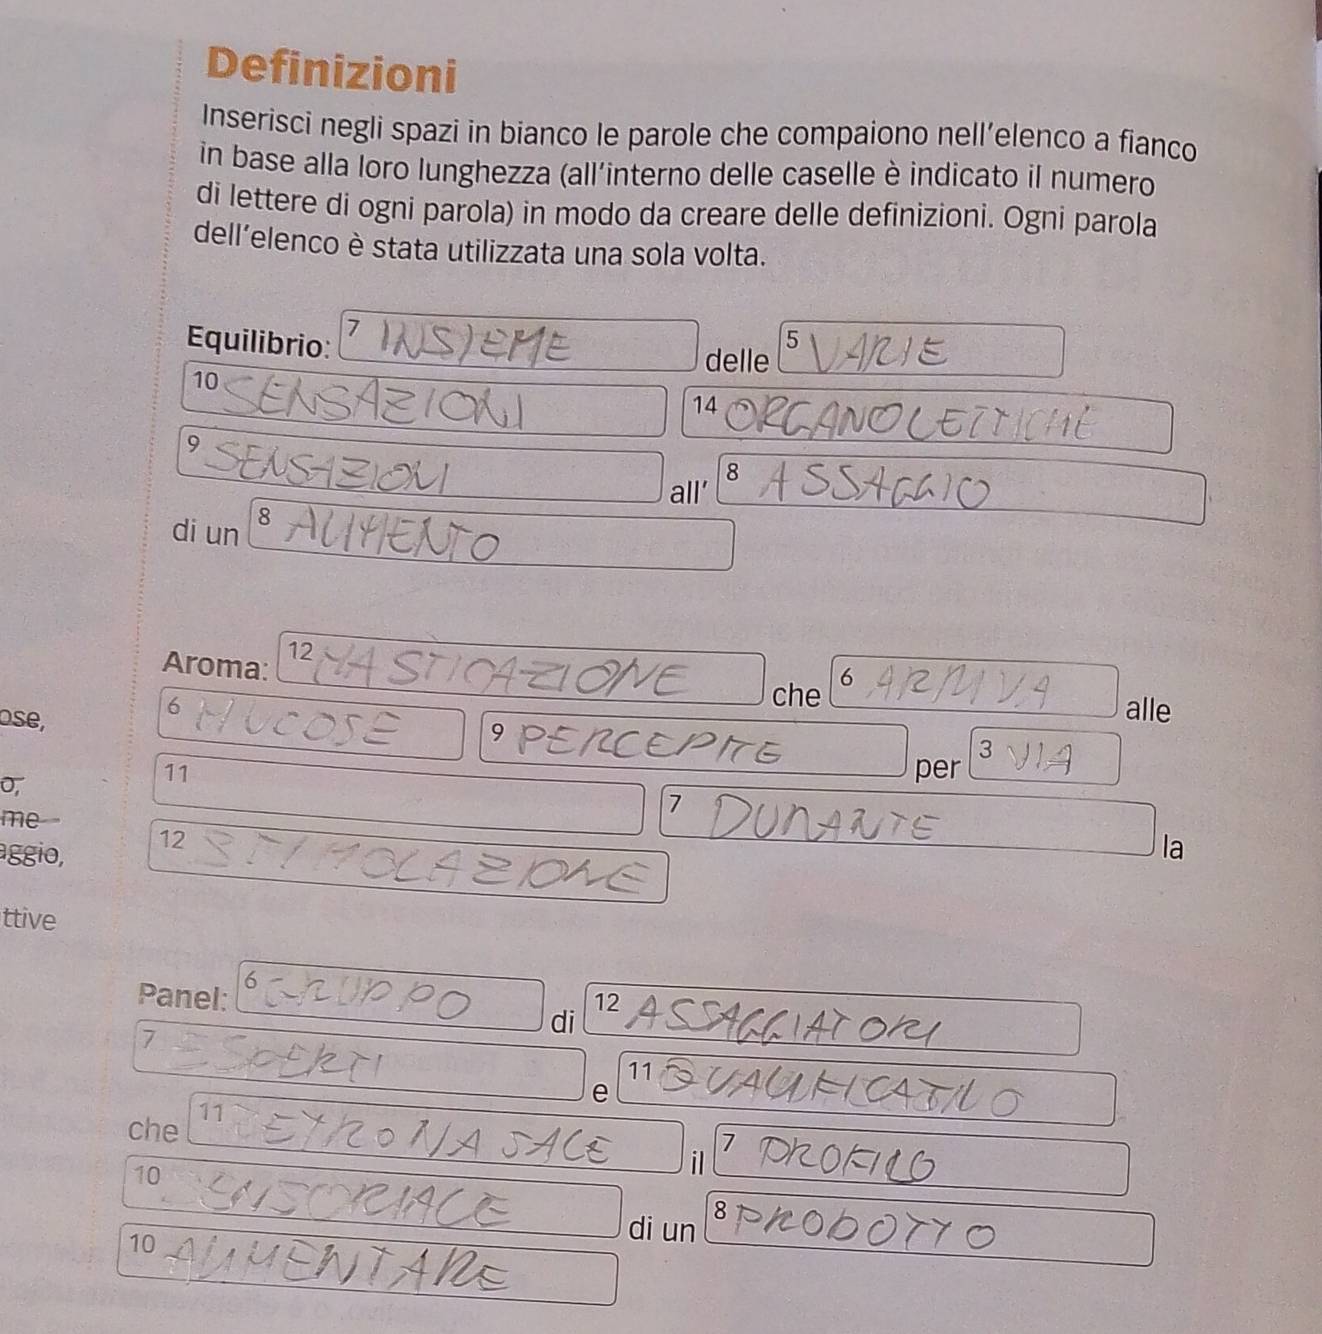 Definizioni
Inserisci negli spazi in bianco le parole che compaiono nell'elenco a fianco
in base alla loro lunghezza (all'interno delle caselle è indicato il numero
di lettere di ogni parola) in modo da creare delle definizioni. Ogni parola
dell'elenco è stata utilizzata una sola volta.
Equilibrio: 7 INSIEME delle 5 VARIE
10 SENSAZIONI 14 ORGANOLETTICHE
9 SENSAZIONI all' 8 ASSAGGIO
di un 8 ALIMENTO
Aroma: 12 MASTICAZIONE che 6 ARRIVA alle
ose, 6 MUCOSE 9 PERCEPITE per 3 VIA
o, 11 7 DURANTE la
me
aggio, 12 STIMOLAZIONE
ttive
Panel: 6 GRUPPO di 12 ASSAGGIATORI
7 ESPERTI e 11 QUALIFICATIVO
che 11 RETRONASALE il 7 PROFILO
10 SENSORIALE di un 8 PRODOTTO
10 ALIMENTARE